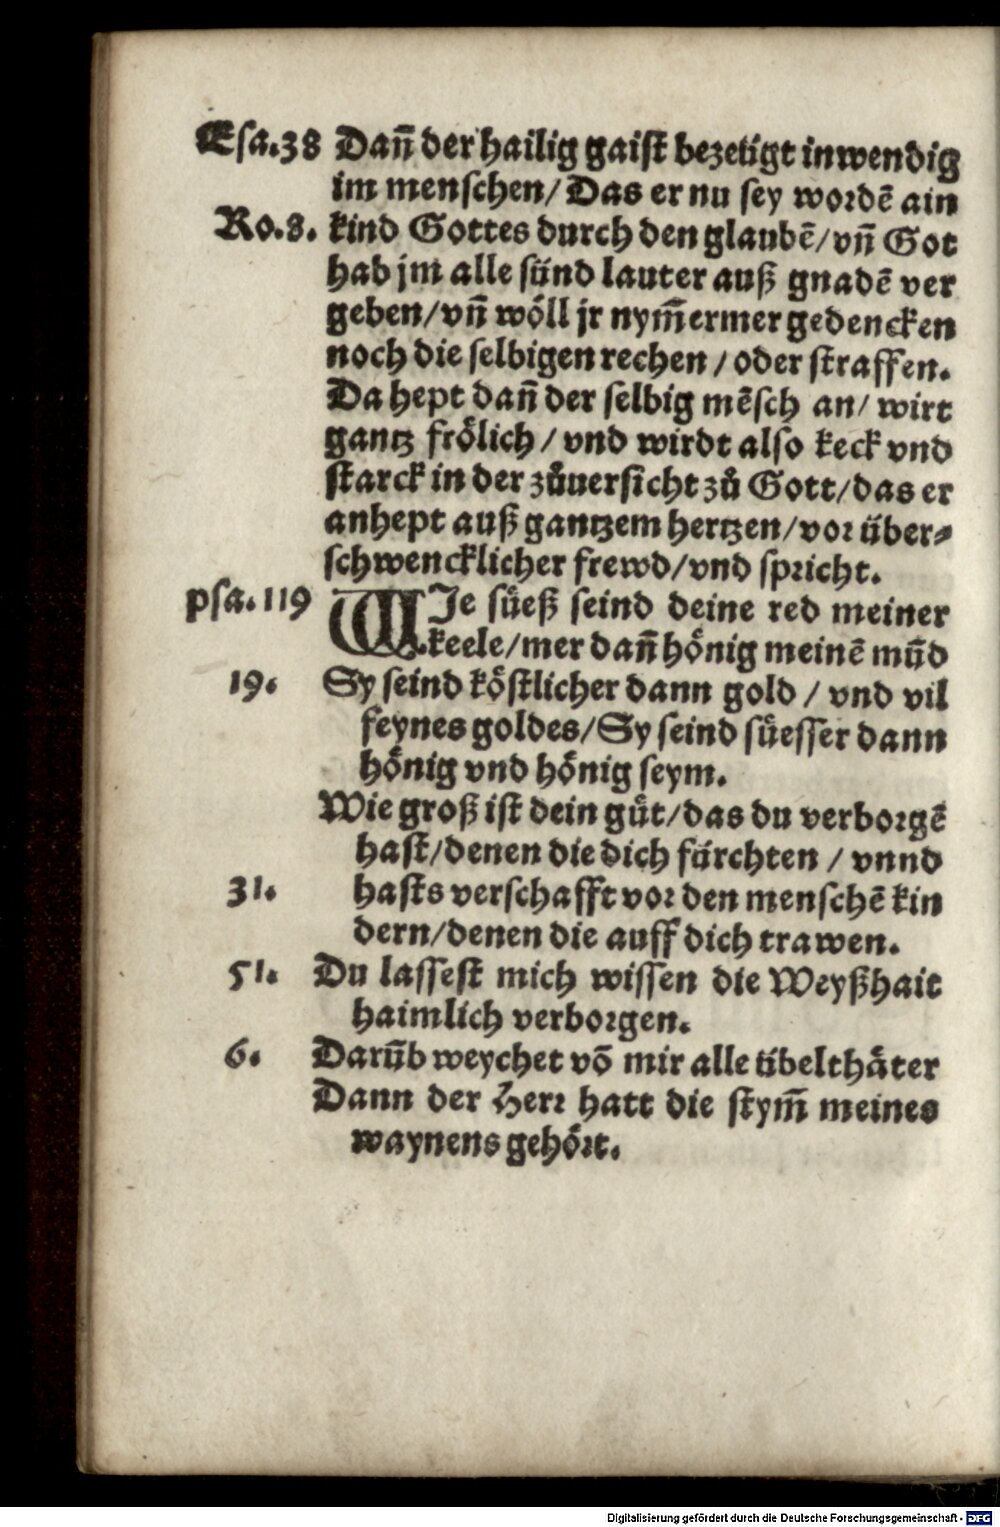 Esa.38 Dañ der hailig gaist bezeügt inwendig
im menschen/ Das er nu sey wordẽ ain
Ro.8. kind Gottes durch den glaubẽ/ vñ Got
hab jm alle sünd lauter auß gnadẽ ver
geben/ vñ wöll jr nym̃ermer gedencken
noch die selbigen rechen / oder straffen.
Da hept dañ der selbig mẽsch an/ wirt
gantz frölich / vnd wirdt also keck vnd
starck in der zůuersicht zů Gott/ das er
anhept auß gantzem hertzen/ vor über⸗
schwencklicher frewd/ vnd spricht.
psa.119 WIe süeß seind deine red meiner
keele/ mer dañ hönig meinẽ mũd
19. Sy seind köstlicher dann gold / vnd vil
feynes goldes/ Sy seind süesser dann
hönig vnd hönig seym.
Wie groß ist dein güt/ das du verborgẽ
hast/ denen die dich fürchten / vnnd
31. hasts verschafft vor den menschẽ kin
dern/ denen die auff dich trawen.
51. Du lassest mich wissen die Weyßhait
haimlich verborgen.
6. Darũb weychet võ mir alle übelthäter
Dann der Herr hatt die stym̃ meines
waynens gehört.
Digitalisierung gefördert durch die Deutsche Forschungsgemeinschaft - DFG